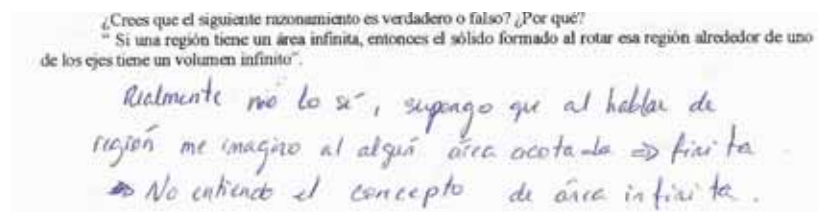 ¿Crees que el siguiente razonamiento es verdadero o falso? ¿Por qué?
" Si una región tiene un área infinita, entonces el sólido formado al rotar esa región alrededor de uno
de los ejes tiene un volumen infinito".
Realmente no lo sé, supongo que al hablar de
región me imagino al algún área acotada ⇒ finita
⇒ No entiendo el concepto de área infinita.